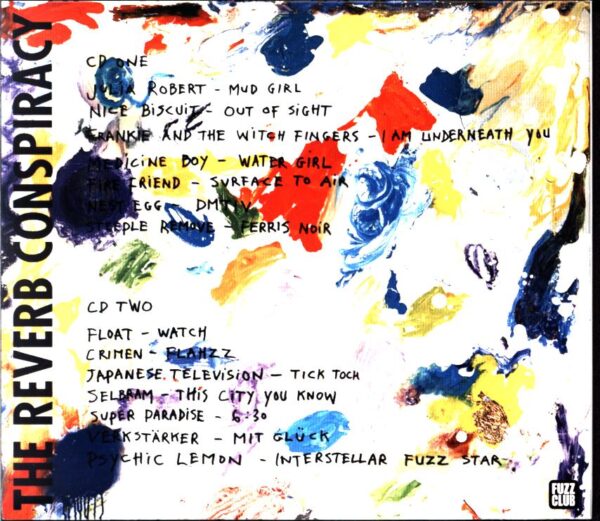 THE REVERB CONSPIRACY
CD ONE
JULIA ROBERT - MUD GIRL
NICE BISCUIT - OUT OF SIGHT
FRANKIE AND THE WITCH FINGERS - I AM UNDERNEATH YOU
MEDICINE BOY - WATER GIRL
FIRE FRIEND - SURFACE TO AIR
NEST EGG - DMTIV
STEEPLE REMOVE - FERRIS NOIR
CD TWO
FLOAT - WATCH
CRIMEN - FLAHZZ
JAPANESE TELEVISION - TICK TOCH
SELBRAM - THIS CITY YOU KNOW
SUPER PARADISE - 6:30
VERKSTÄRKER - MIT GLÜCK
PSYCHIC LEMON - INTERSTELLAR FUZZ STAR
FUZZ
CLUB